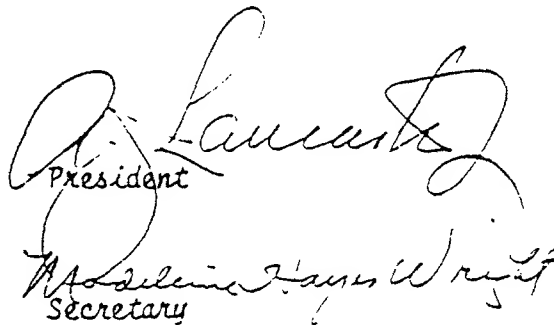 Lancaster
President
Madeleine Hayes Wright
Secretary